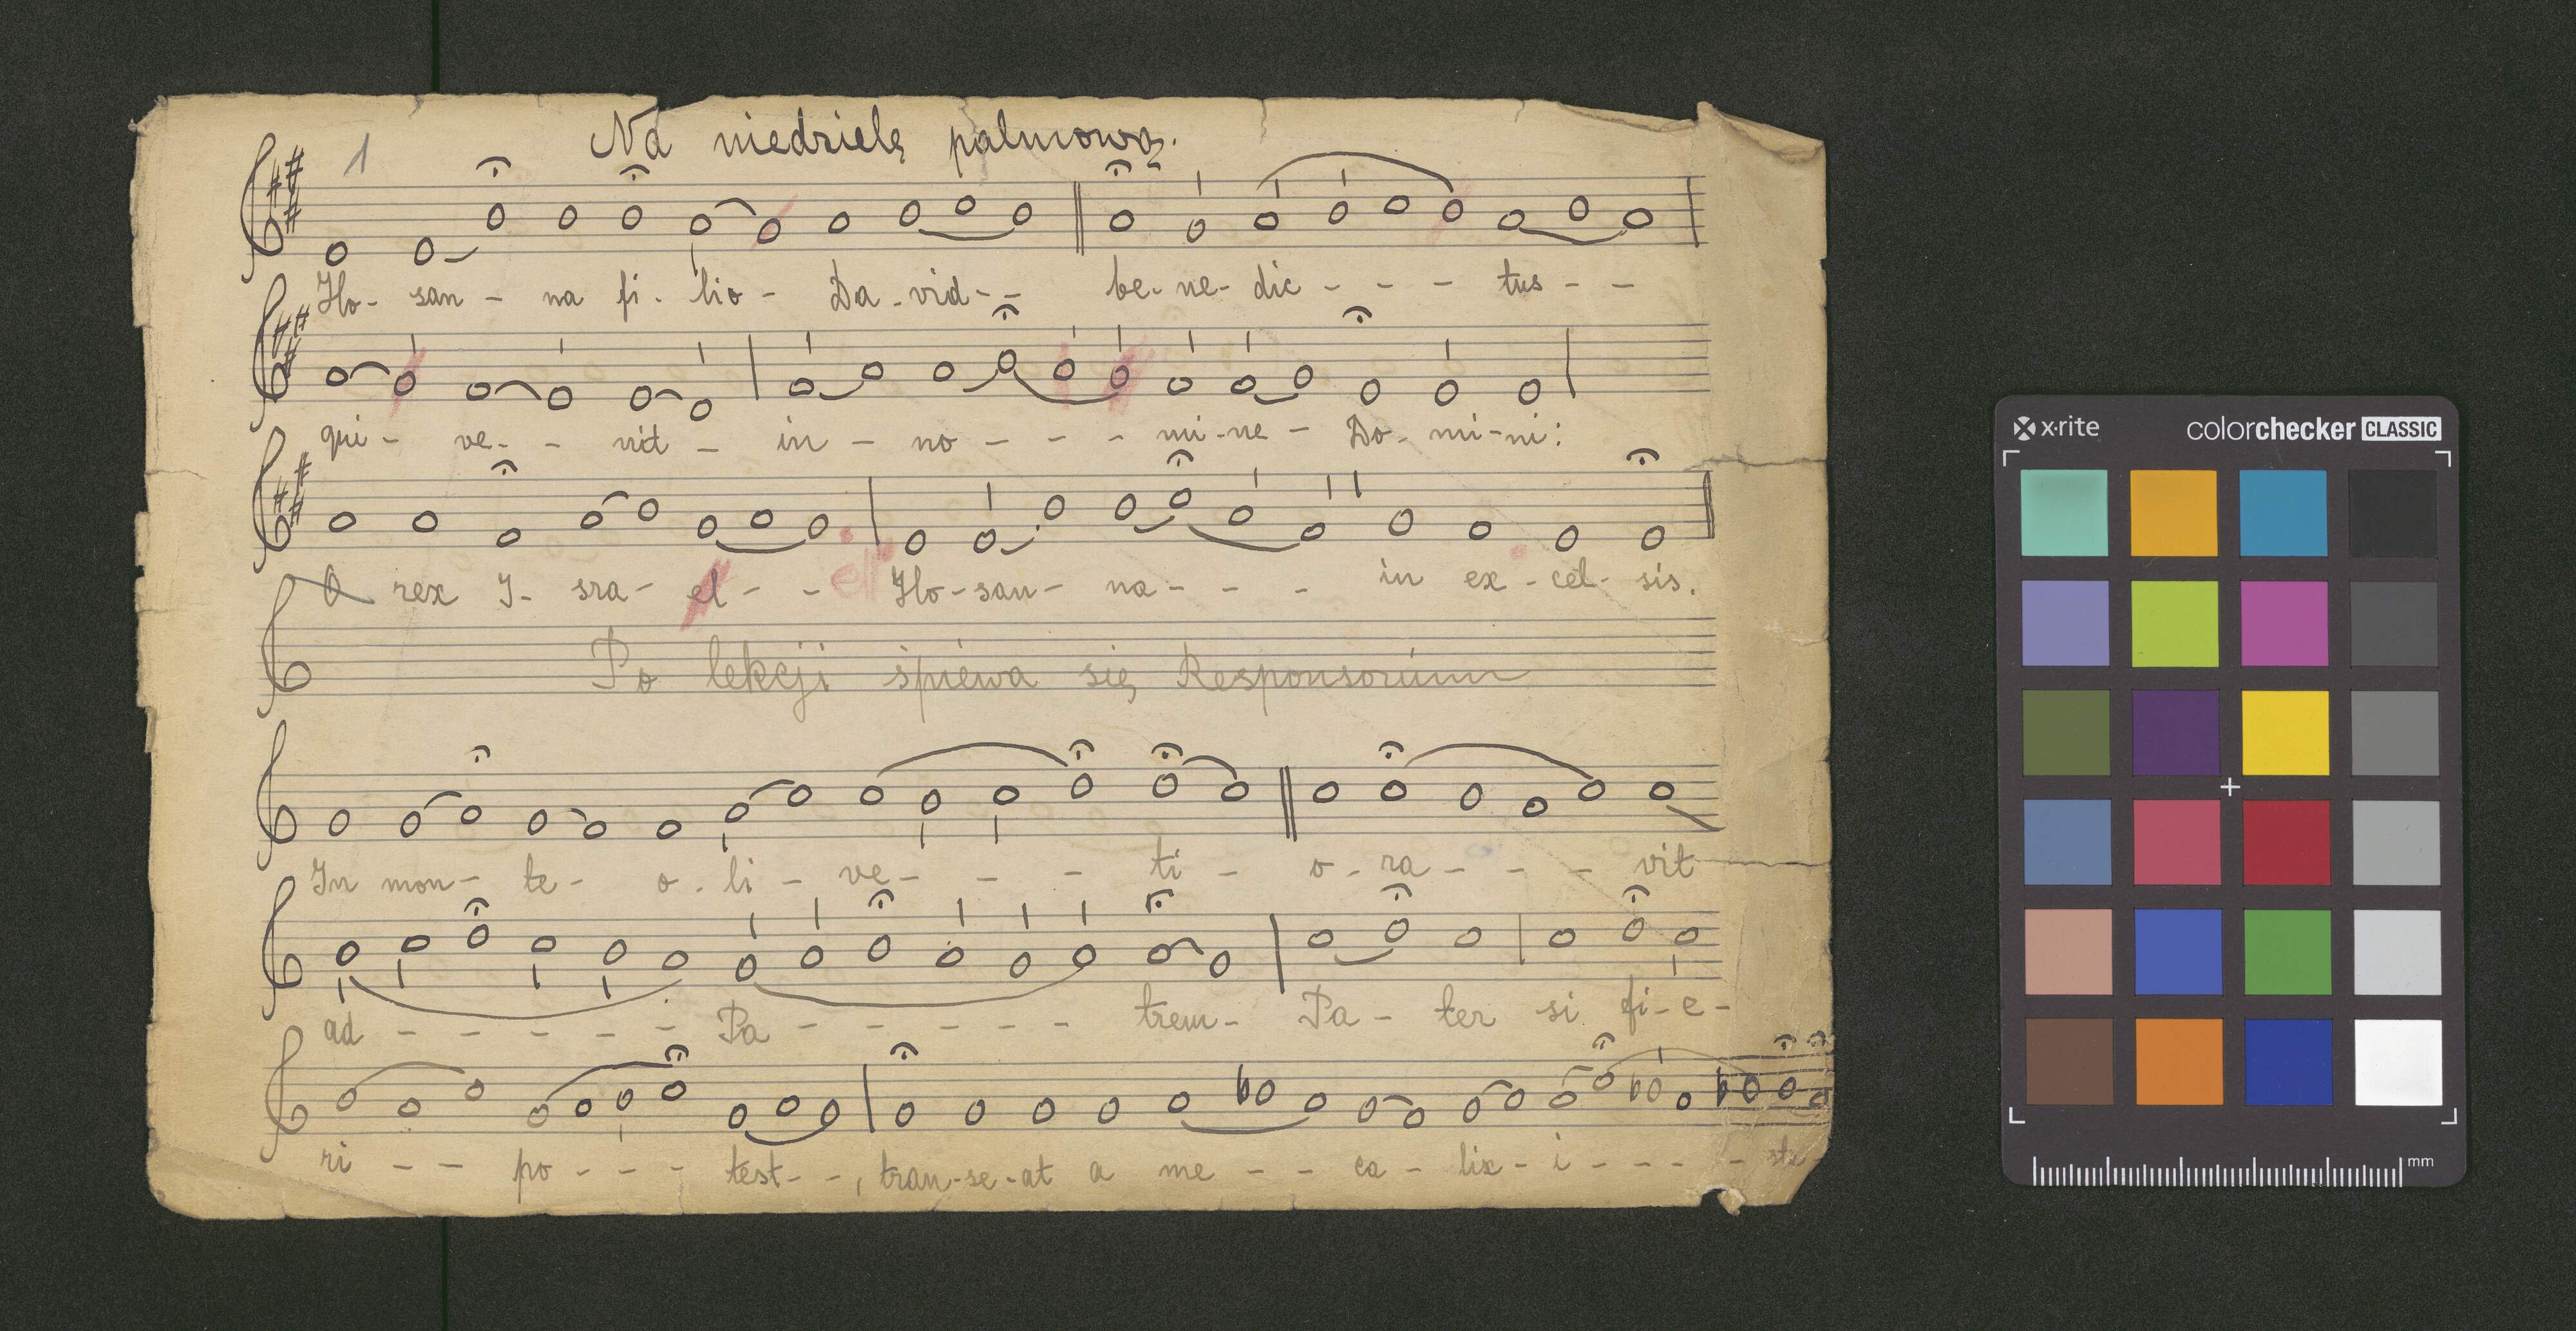 1 Na niedzielę palmową.
Ho - san - na fi - lio - Da - vid - - be - ne - dic - - - tus - -
qui - ve - - nit - in - no - - - mi - ne - Do - mi - ni:
O rex I - sra - el - - el Ho - san - na - - - in ex - cel - sis.
Po lekcji śpiéwa się Responsorium
In mon - te - o - li - ve - - - ti - o - ra - - - vit
ad - - - - - Pa - - - - - trem - Pa - ter si fi - e -
ri - - po - - - test - - , tran - se - at a me - - ca - lix - i - - - - ste
x·rite colorchecker CLASSIC
mm